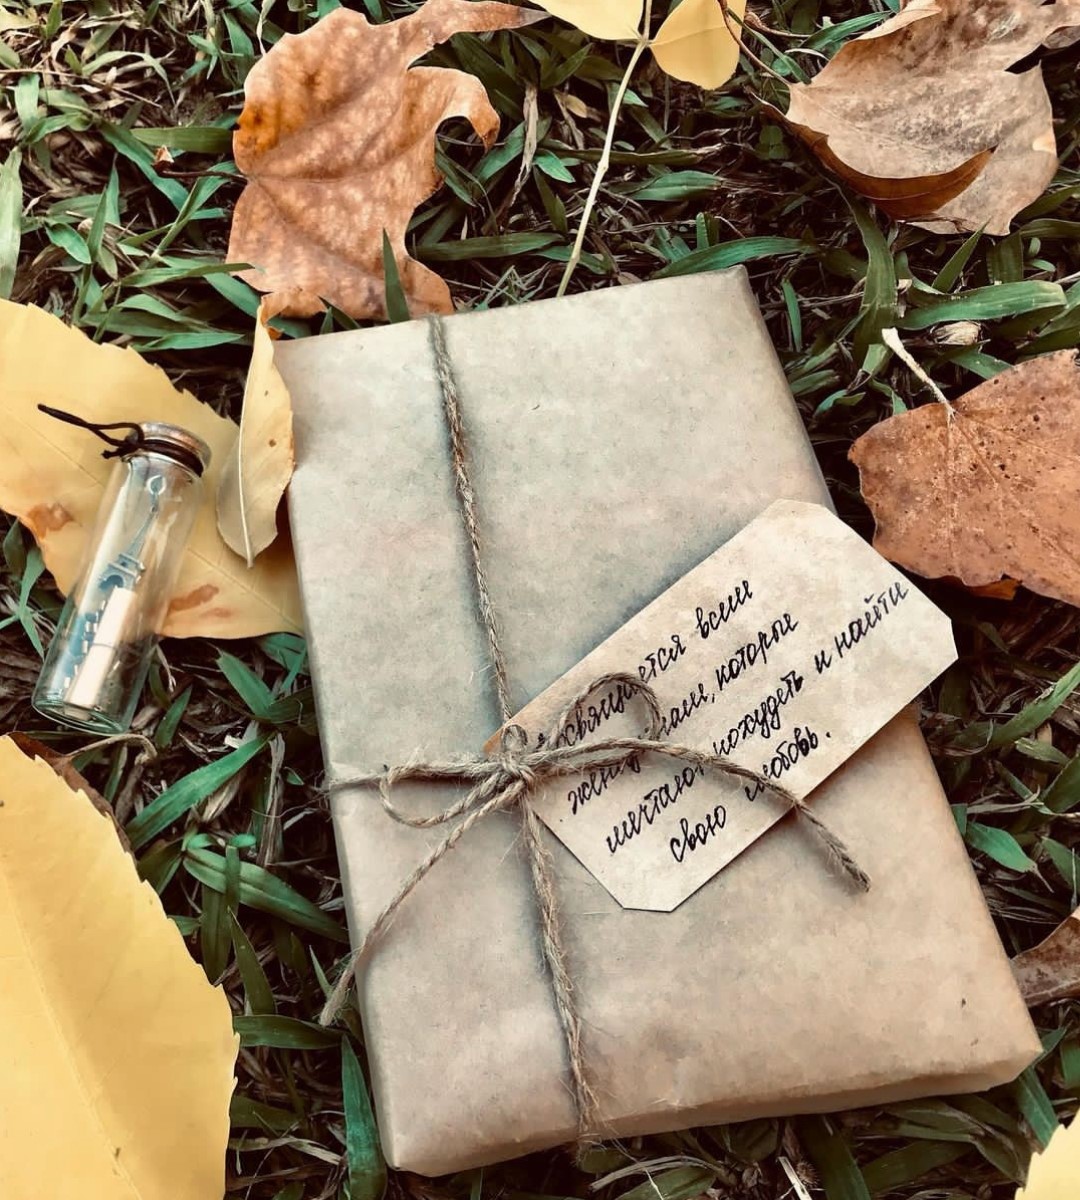 Посвящается всем
женщинам, которые
мечтают похудеть и найти
свою любовь.